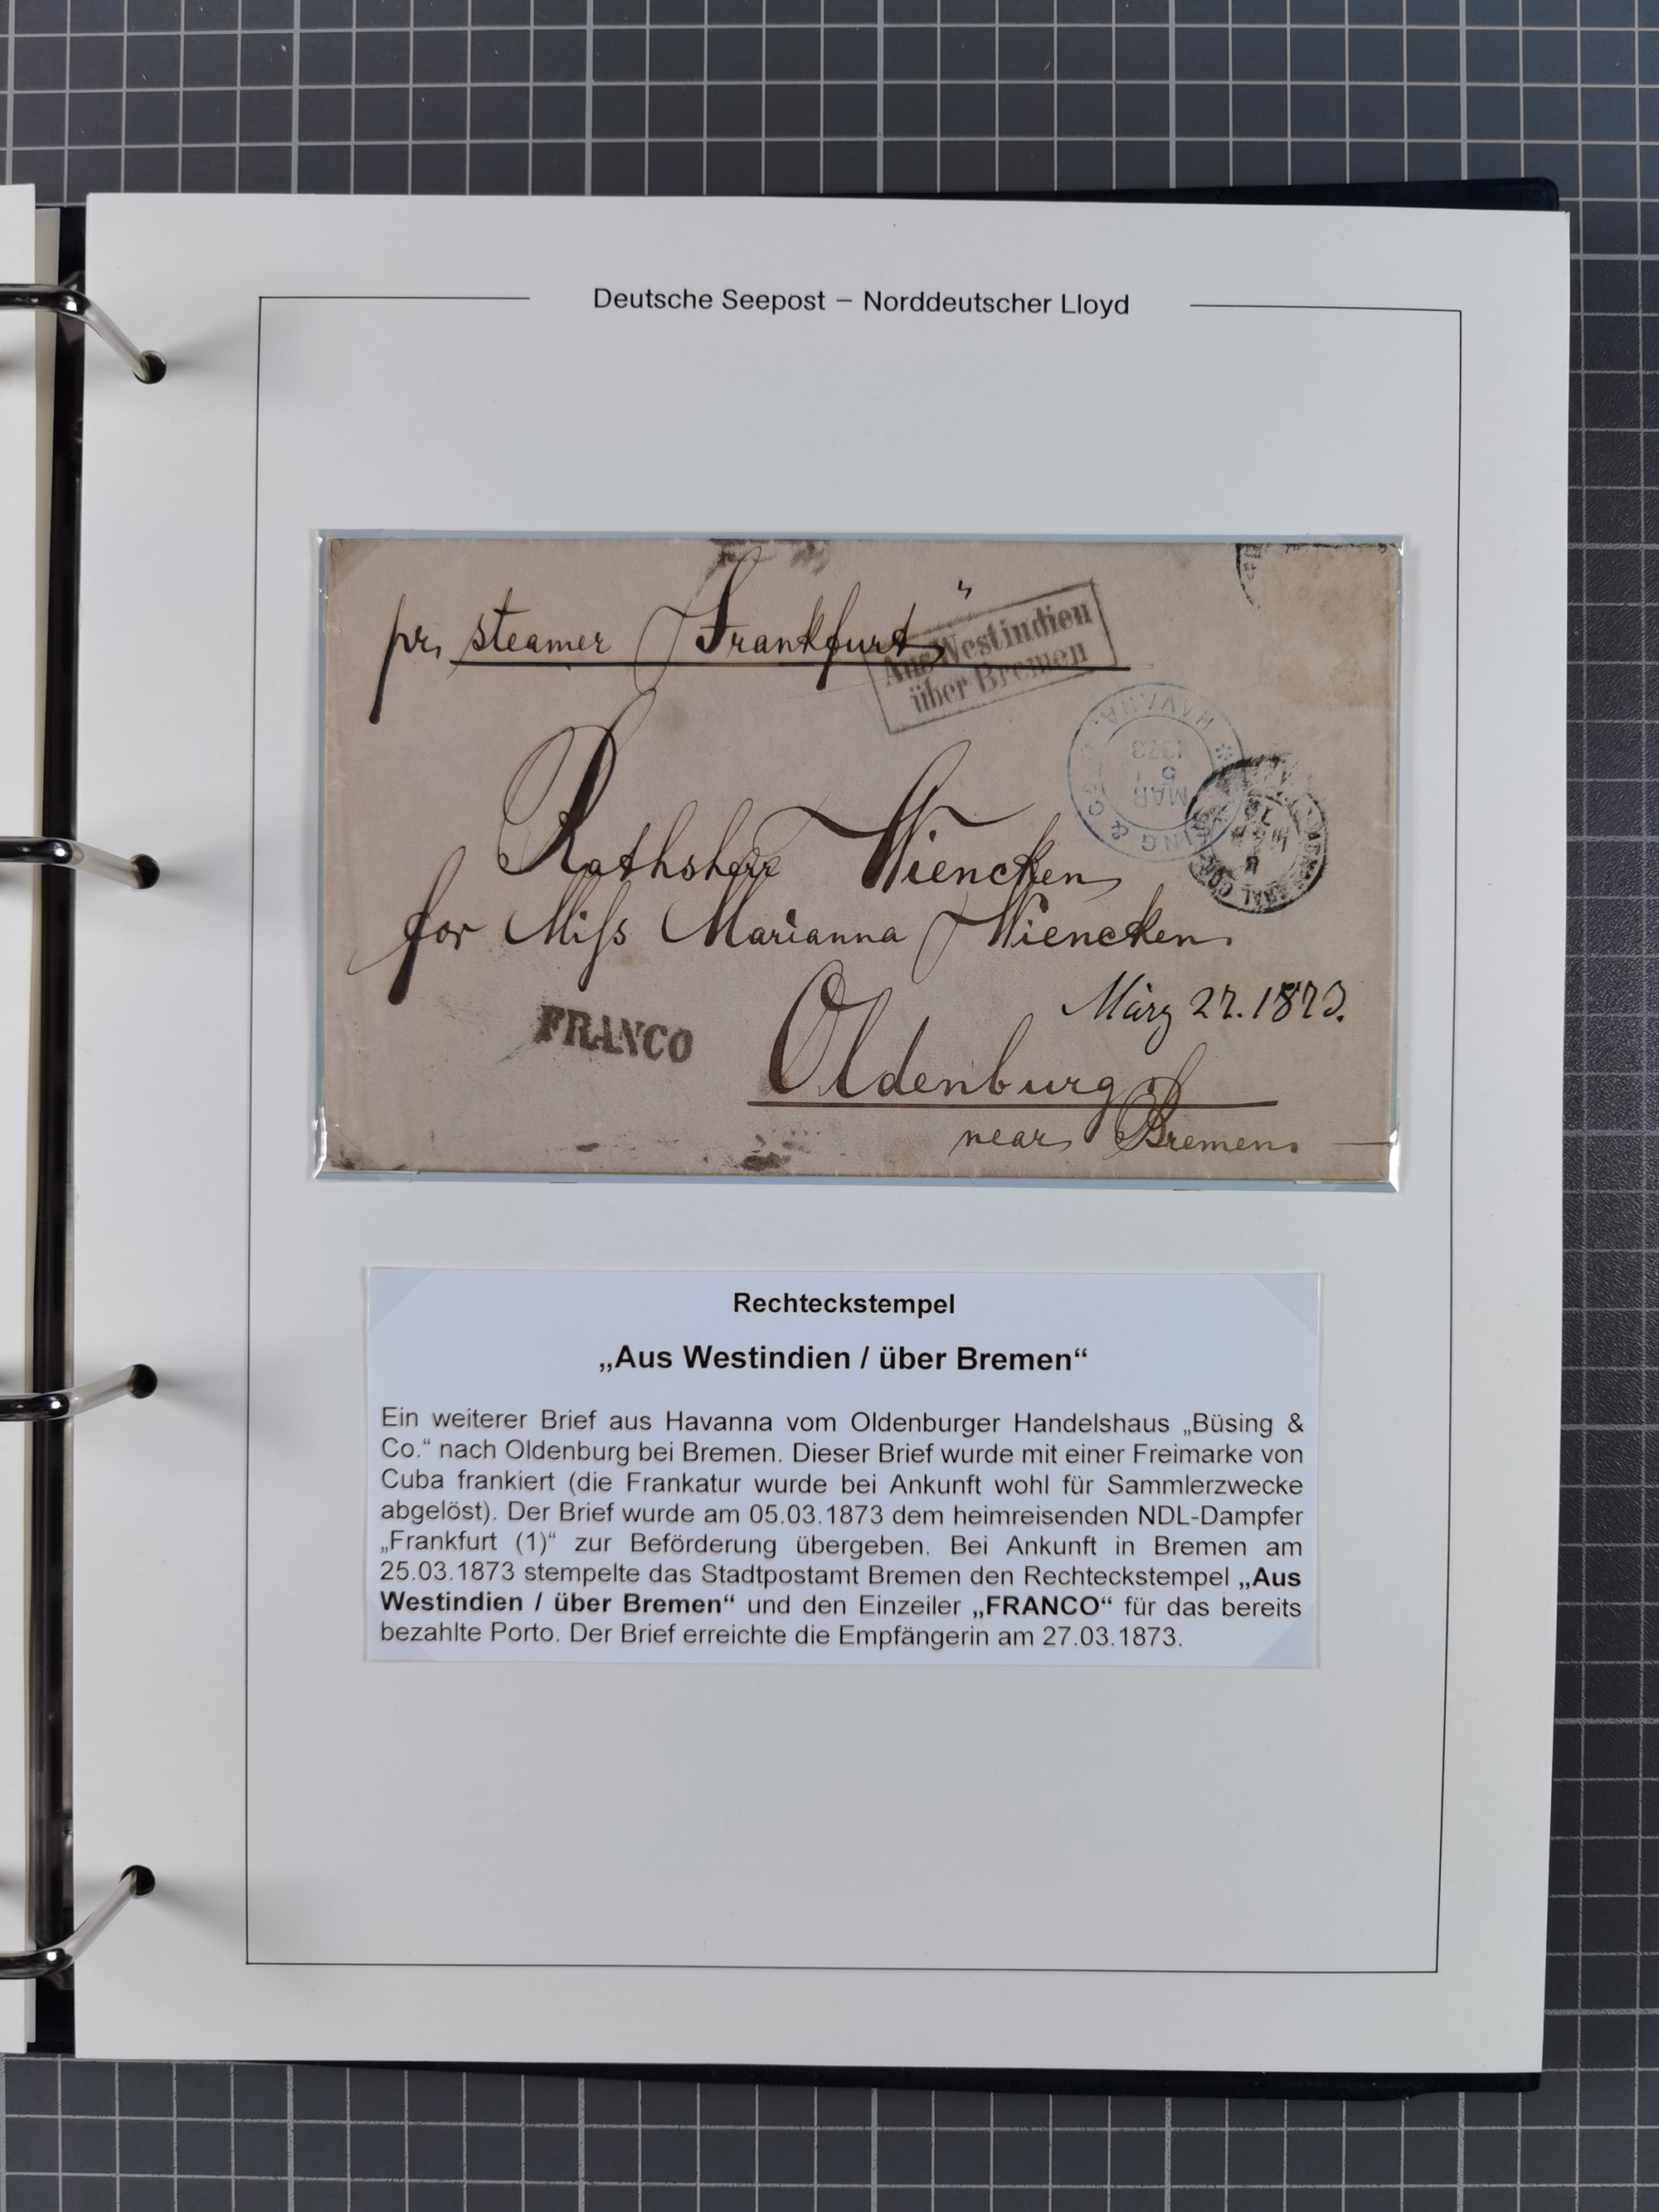 Deutsche Seepost – Norddeutscher Lloyd
pr. steamer „Frankfurt"
Aus Westindien
über Bremen
HAVANA.
1873
5
MAR
ING & CO
Rathsherr Wiencken
for Miss Marianna Wiencken.
März 27. 1873.
FRANCO
Oldenburg
near Bremen.
Rechteckstempel
„Aus Westindien / über Bremen“
Ein weiterer Brief aus Havanna vom Oldenburger Handelshaus „Büsing &
Co.“ nach Oldenburg bei Bremen. Dieser Brief wurde mit einer Freimarke von
Cuba frankiert (die Frankatur wurde bei Ankunft wohl für Sammlerzwecke
abgelöst). Der Brief wurde am 05.03.1873 dem heimreisenden NDL-Dampfer
„Frankfurt (1)“ zur Beförderung übergeben. Bei Ankunft in Bremen am
25.03.1873 stempelte das Stadtpostamt Bremen den Rechteckstempel „Aus
Westindien / über Bremen“ und den Einzeiler „FRANCO“ für das bereits
bezahlte Porto. Der Brief erreichte die Empfängerin am 27.03.1873.